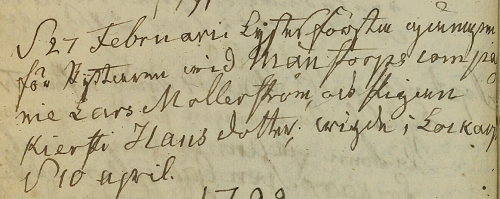 D 27 Februarii Lystes första gången
för Ryttaren wid Månstorps Compag
nie Lars Mollerström, och Pigan
Kiersti Hans dotter, wigde i Lockarp
D 10 april.